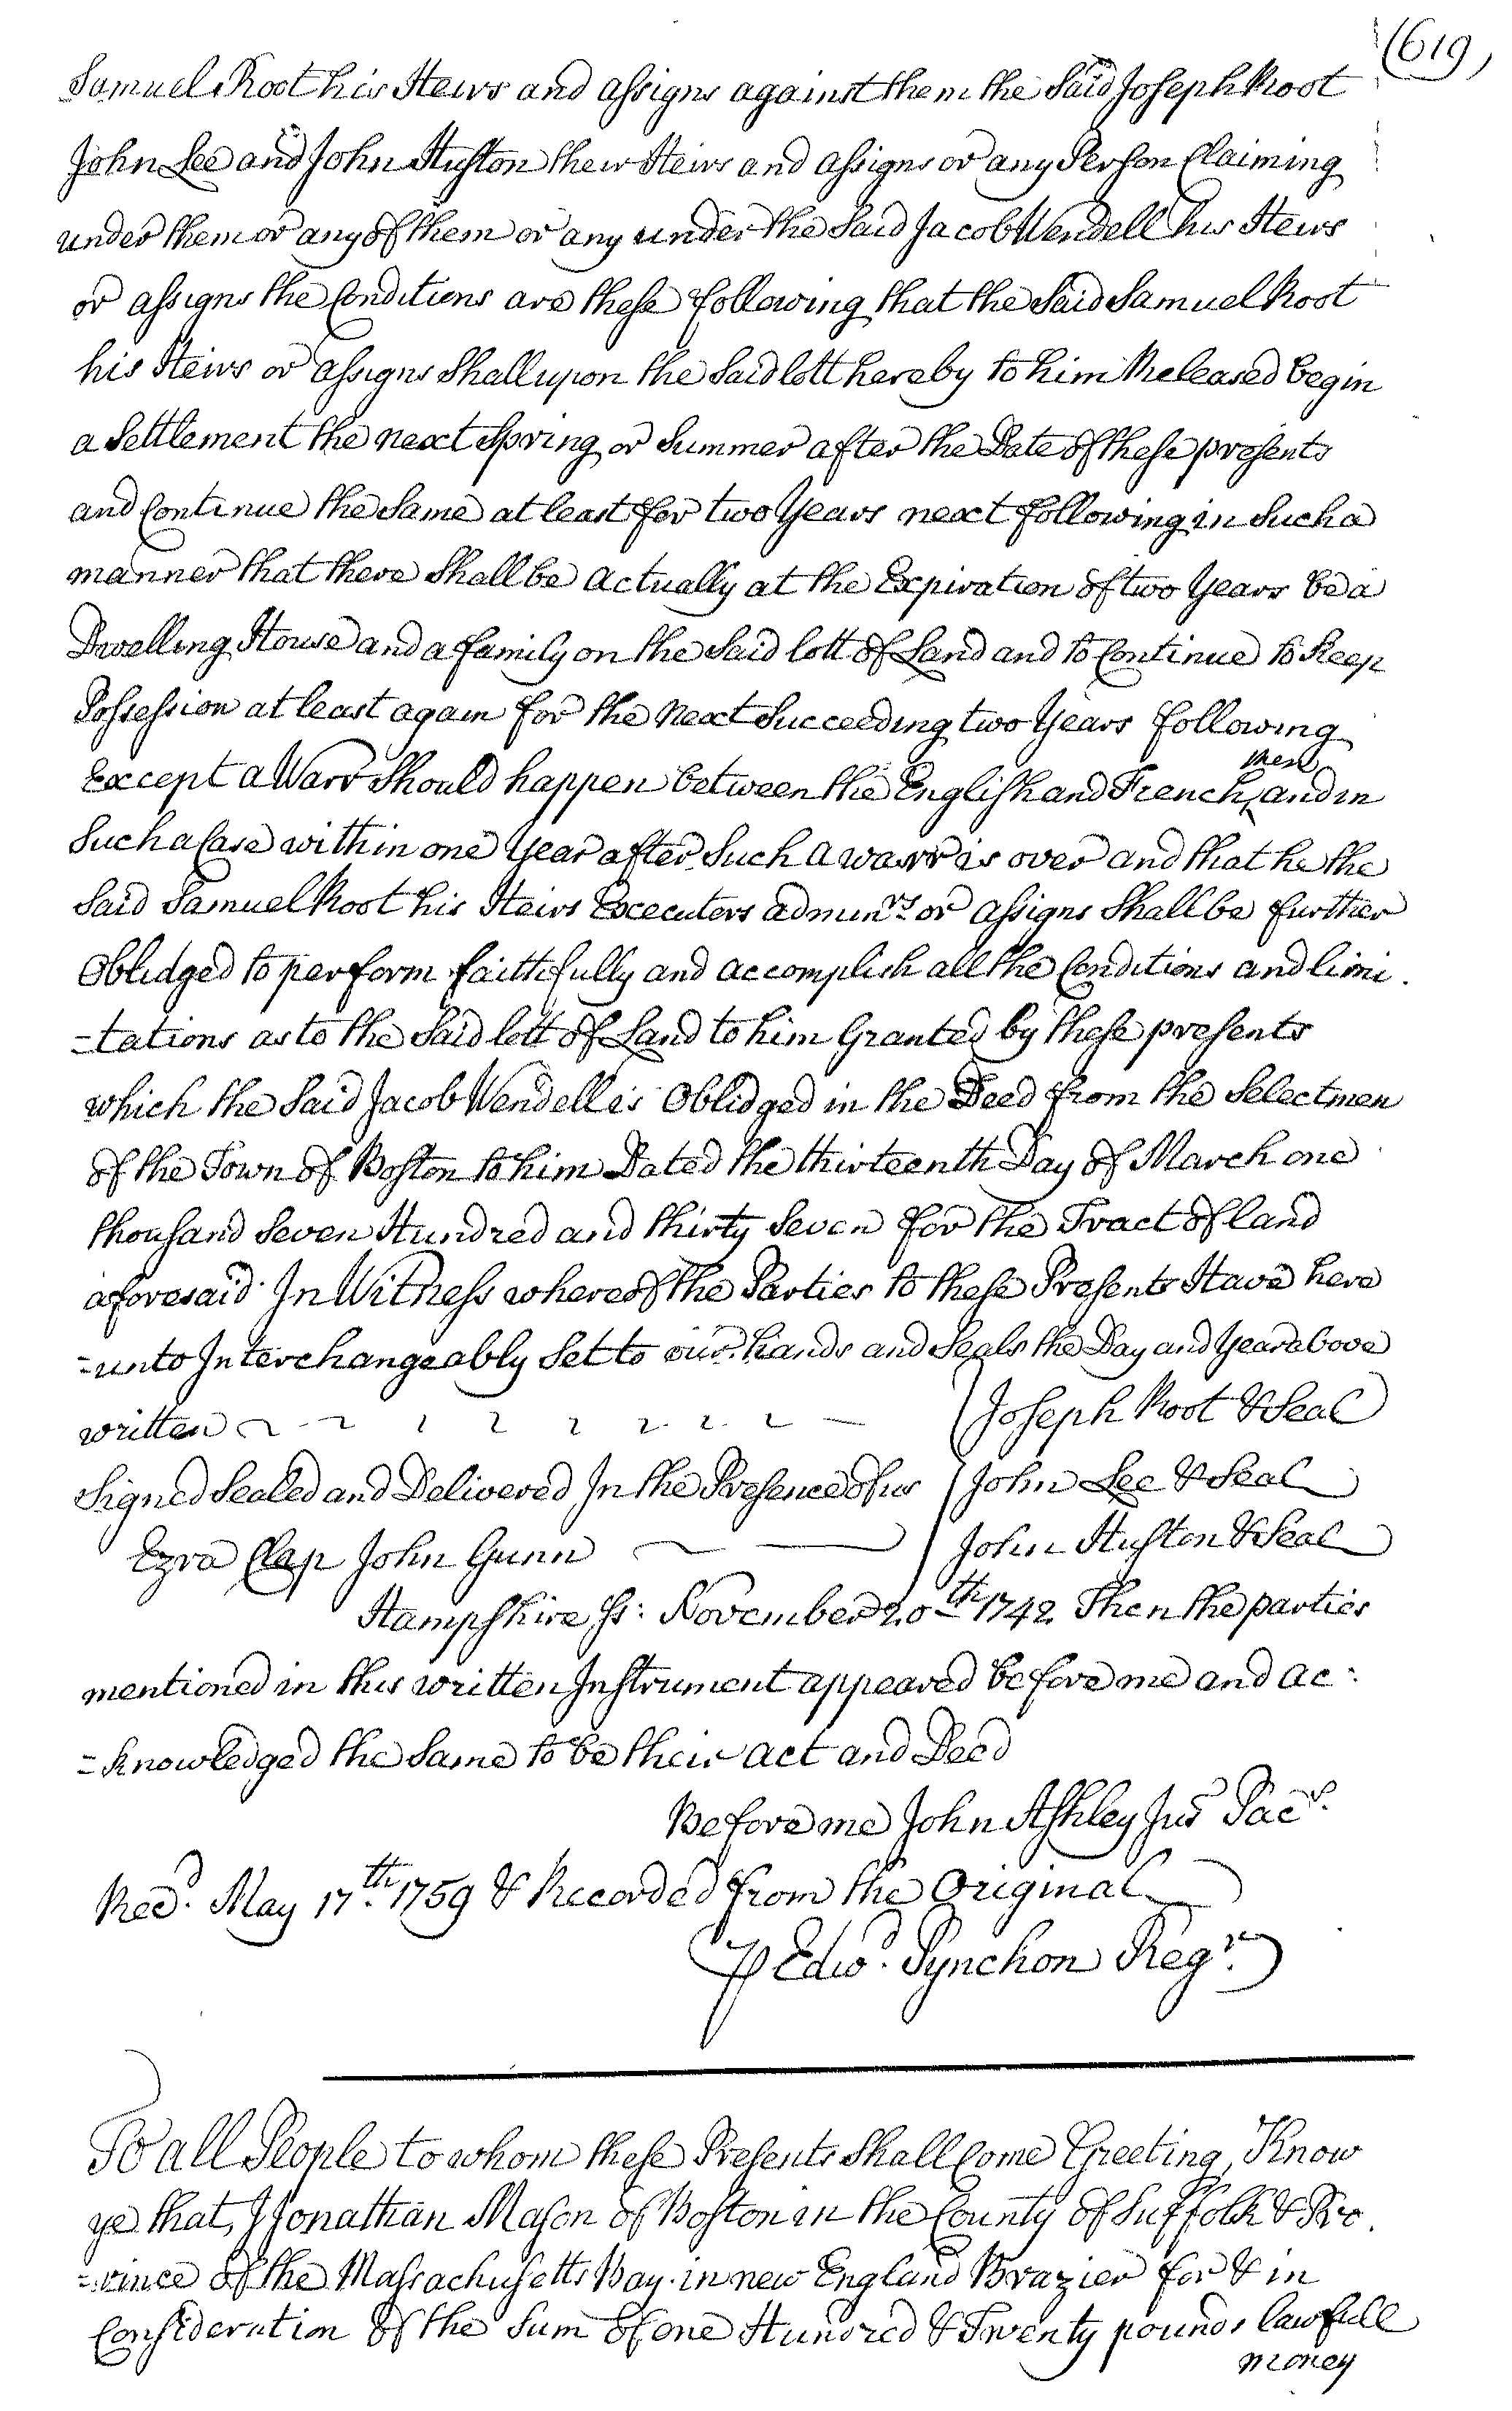 (619)
Samuel Root his Heirs and assigns against them the Said Joseph Root
John Lee and John Huston their Heirs and assigns or any Person Claiming
under them or any of them or any under the Said Jacob Wendell his Heirs
or assigns the Conditions are these following that the Said Samuel Root
his Heirs or assigns Shall upon the Said lott hereby to him Released begin
a Settlement the next Spring or Summer after the Date of these presents
and Continue the Same at least for two Years next following in Such a
manner that there Shall be actually at the Expiration of two Years be a
Dwelling House and a family on the Said lott of Land and to Continue to Keep
Possession at least again for the next Succeeding two Years following
Except a Warr Should happen between the English and French then and in
Such a Case within one Year after Such a warr is over and that he the
Said Samuel Root his Heirs Executers admin.rs or assigns Shall be further
Oblidged to perform faithfully and accomplish all the Conditions and limi
-tations as to the Said lott of Land to him Granted by these presents
which the Said Jacob Wendell is Oblidged in the Deed from the Selectmen
of the Town of Boston to him Dated the thirteenth Day of March one
thousand Seven Hundred and thirty Seven for the Tract of land
aforesaid In Witness whereof the Parties to these Presents Have here
=unto Interchangeably Set to our hands and Seals the Day and Year above
written Joseph Root & Seal
Signed Sealed and Delivered In the Presence of us John Lee & Seal
Ezra Clap John Gunn John Huston & Seal
Hampshire ss: November 20th 1742 Then the parties
mentioned in this written Instrument appeared before me and ac:
=knowledged the Same to be their act and Deed
Before me John Ashley Jus Pac.s
Rec.d May 17.th 1759 & Recorded from the Original
⅌ Edw.d Pynchon Reg.r
To all People to whom these Presents Shall Come Greeting, Know
ye that, I Jonathan Mason of Boston in the County of Suffolk & Pro
=vince of the Massachusetts Bay in new England Brazier for & in
Consideration of the Sum of one Hundred & Twenty pounds lawfull
money